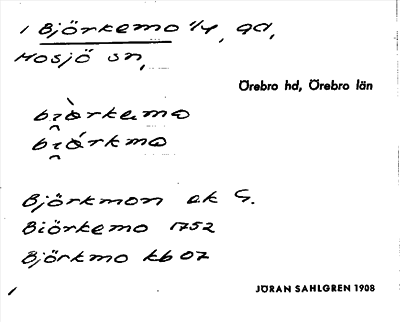 1 Björkemo 1/4, gd,
Mosjö sn,
Örebro hd, Örebro län
bi̯òrkemo
bi̯órkmo
Björkmon ek G.
Biörkemo 1752
Björkmo kb 07
JÖRAN SAHLGREN 1908